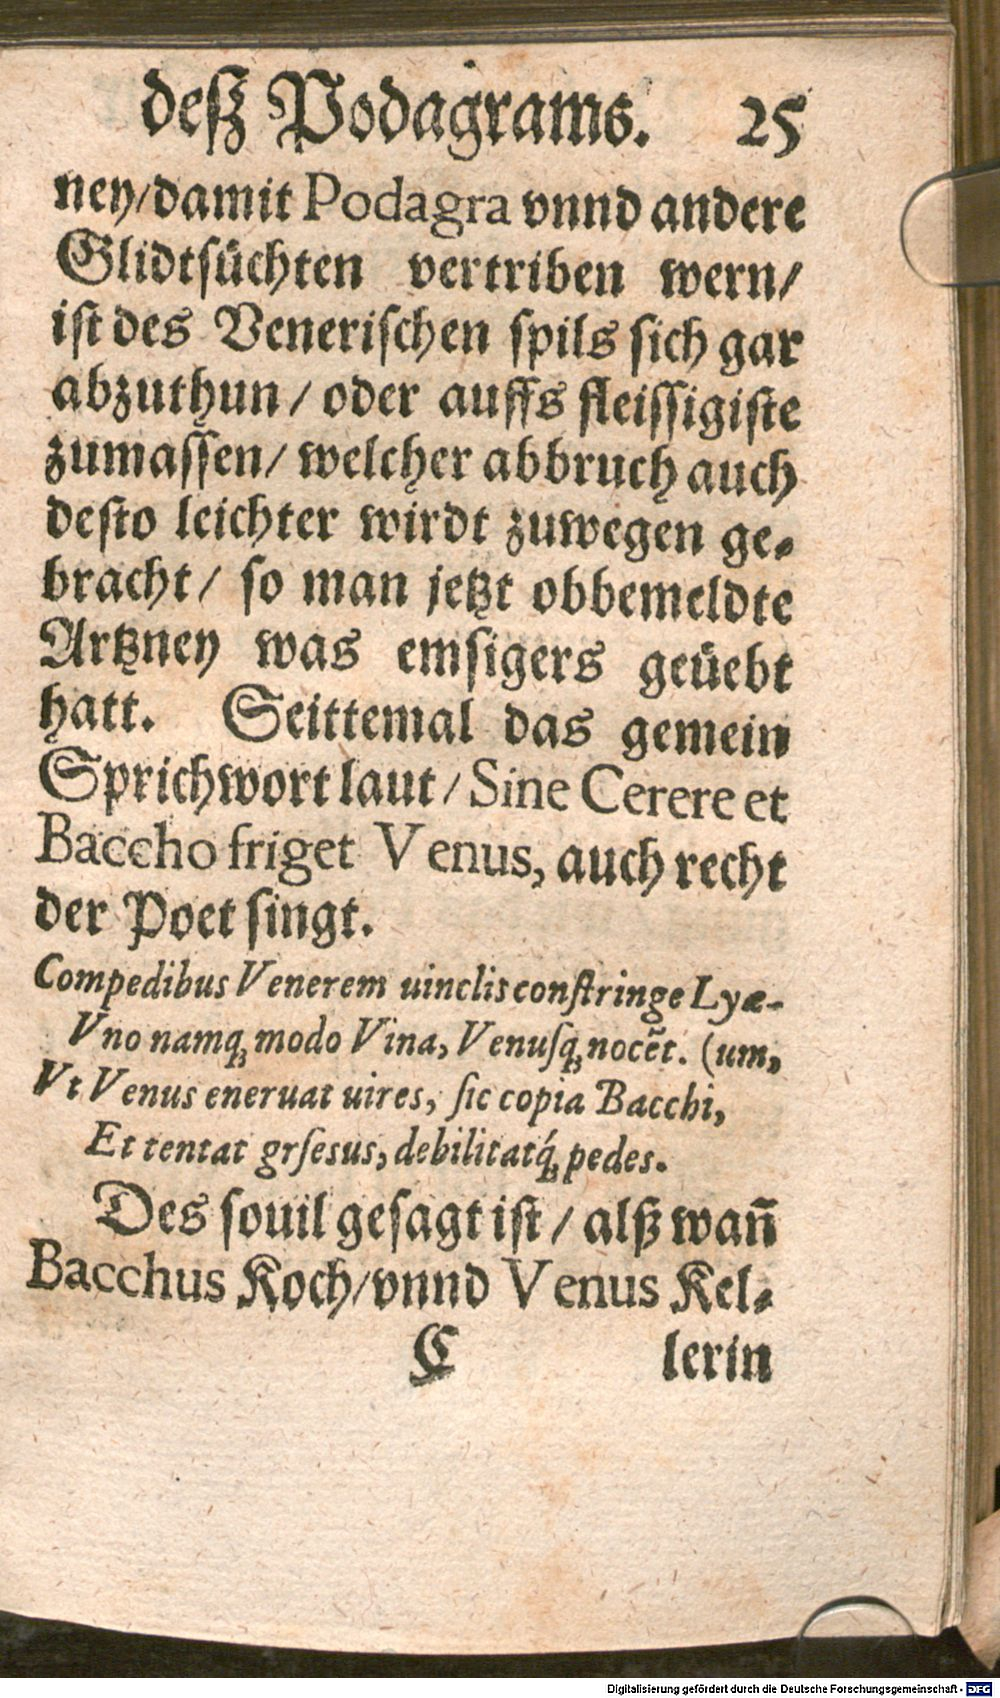 deſz Podagrams. 25
ney/damit Podagra vnnd andere
Glidtſüchten vertriben wern/
iſt des Veneriſchen ſpils ſich gar
abzuthun / oder auffs fleiſſigiſte
zumaſſen/ welcher abbruch auch
deſto leichter wirdt zuwegen ge⸗
bracht/ ſo man jetzt obbemeldte
Artzney was emſigers geüebt
hatt. Seittemal das gemein
Sprichwort laut / Sine Cerere et
Baccho friget Venus, auch recht
der Poet ſingt.
Compedibus Venerem uinclis conſtringe Lyæ-
Vno namq; modo Vina, Venuſq; nocẽt. (um,
Vt Venus eneruat uires, ſic copia Bacchi,
Et tentat grſesus, debilitatq́; pedes.
Des ſouil geſagt iſt / alſz wañ
Bacchus Koch/vnnd Venus Kel⸗
C lerin
Digitalisierung gefördert durch die Deutsche Forschungsgemeinschaft - DFG